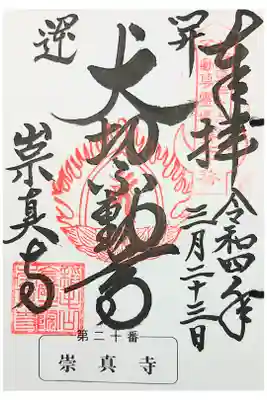 奉拝
令和四年
三月二十三日
昇
大聖不動尊
運
崇真寺
第二十番
崇真寺